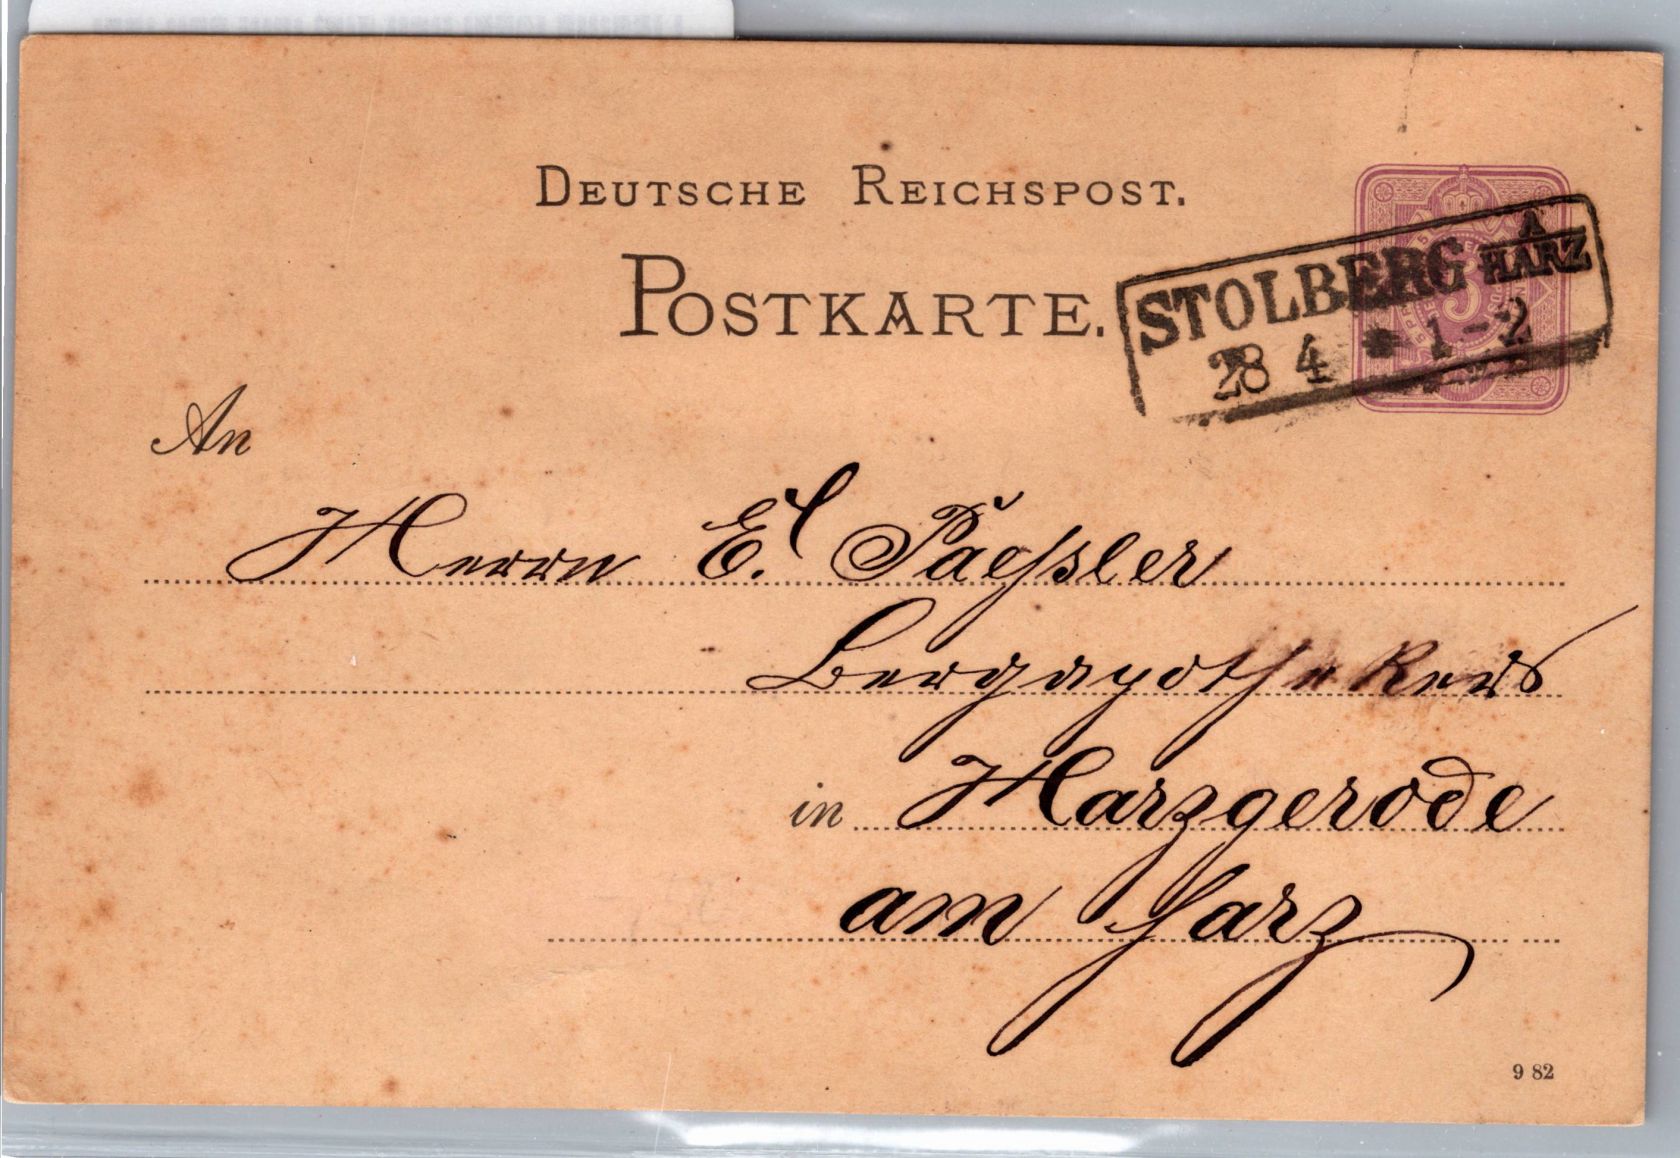 DEUTSCHE REICHSPOST.
POSTKARTE.
STOLBERG A HARZ
28 4 * 1-2
An
Herrn E. Paeſsler
Bergapothekers
in Harzgerode
am Harz
9 82